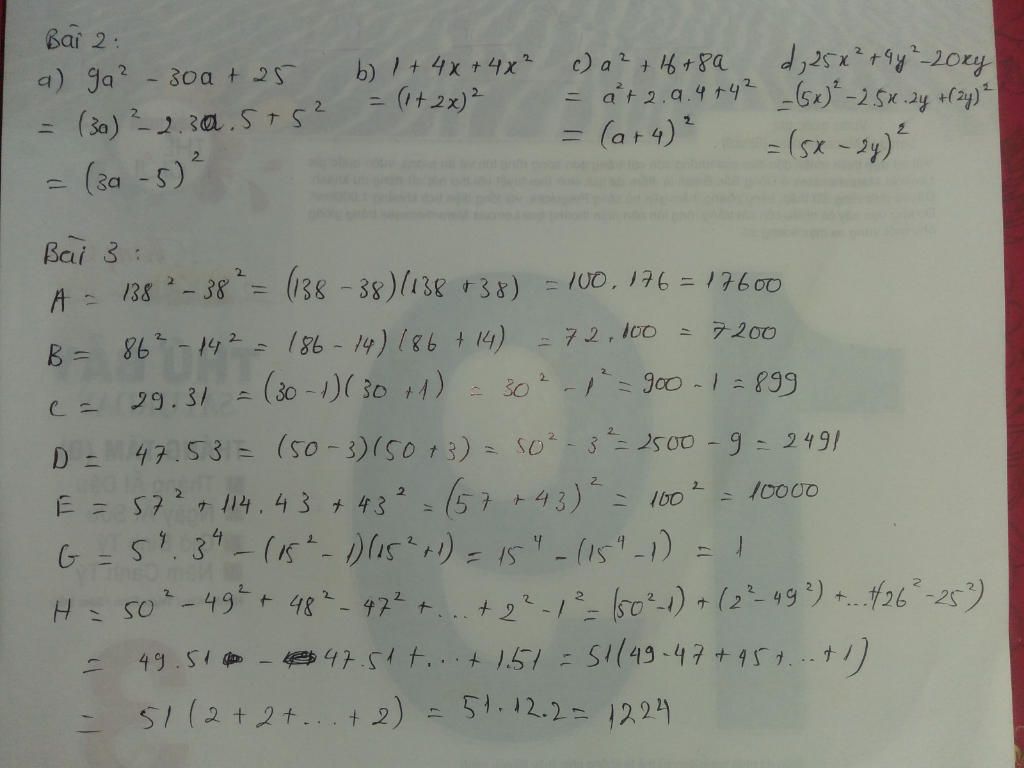 Bài 2:
a) 9a² - 30a + 25
= (3a)² - 2.3a.5 + 5²
= (3a - 5)²
b) 1 + 4x + 4x²
= (1 + 2x)²
c) a² + 16 + 8a
= a² + 2.a.4 + 4²
= (a + 4)²
d, 25x² + 4y² - 20xy
= (5x)² - 2.5x.2y + (2y)²
= (5x - 2y)²
Bài 3:
A = 138² - 38² = (138 - 38)(138 + 38) = 100.176 = 17600
B = 86² - 14² = (86 - 14)(86 + 14) = 72.100 = 7200
C = 29.31 = (30 - 1)(30 + 1) = 30² - 1² = 900 - 1 = 899
D = 47.53 = (50 - 3)(50 + 3) = 50² - 3² = 2500 - 9 = 2491
E = 57² + 114.43 + 43² = (57 + 43)² = 100² = 10000
G = 5⁴.3⁴ - (15² - 1)(15² + 1) = 15⁴ - (15⁴ - 1) = 1
H = 50² - 49² + 48² - 47² + ... + 2² - 1² = (50² - 1) + (2² - 49²) + ... + (26² - 25²)
= 49.51 - 47.51 + ... + 1.51 = 51(49 - 47 + 45 + ... + 1)
= 51(2 + 2 + ... + 2) = 51.12.2 = 1224